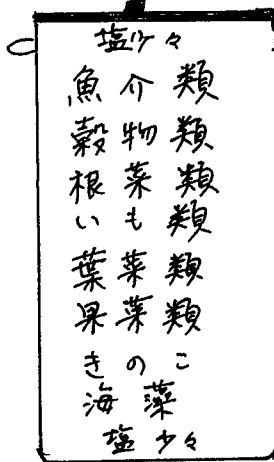 塩少々
魚介類
穀物類
根菜類
いも類
葉菜類
果菜類
きのこ
海藻
塩少々